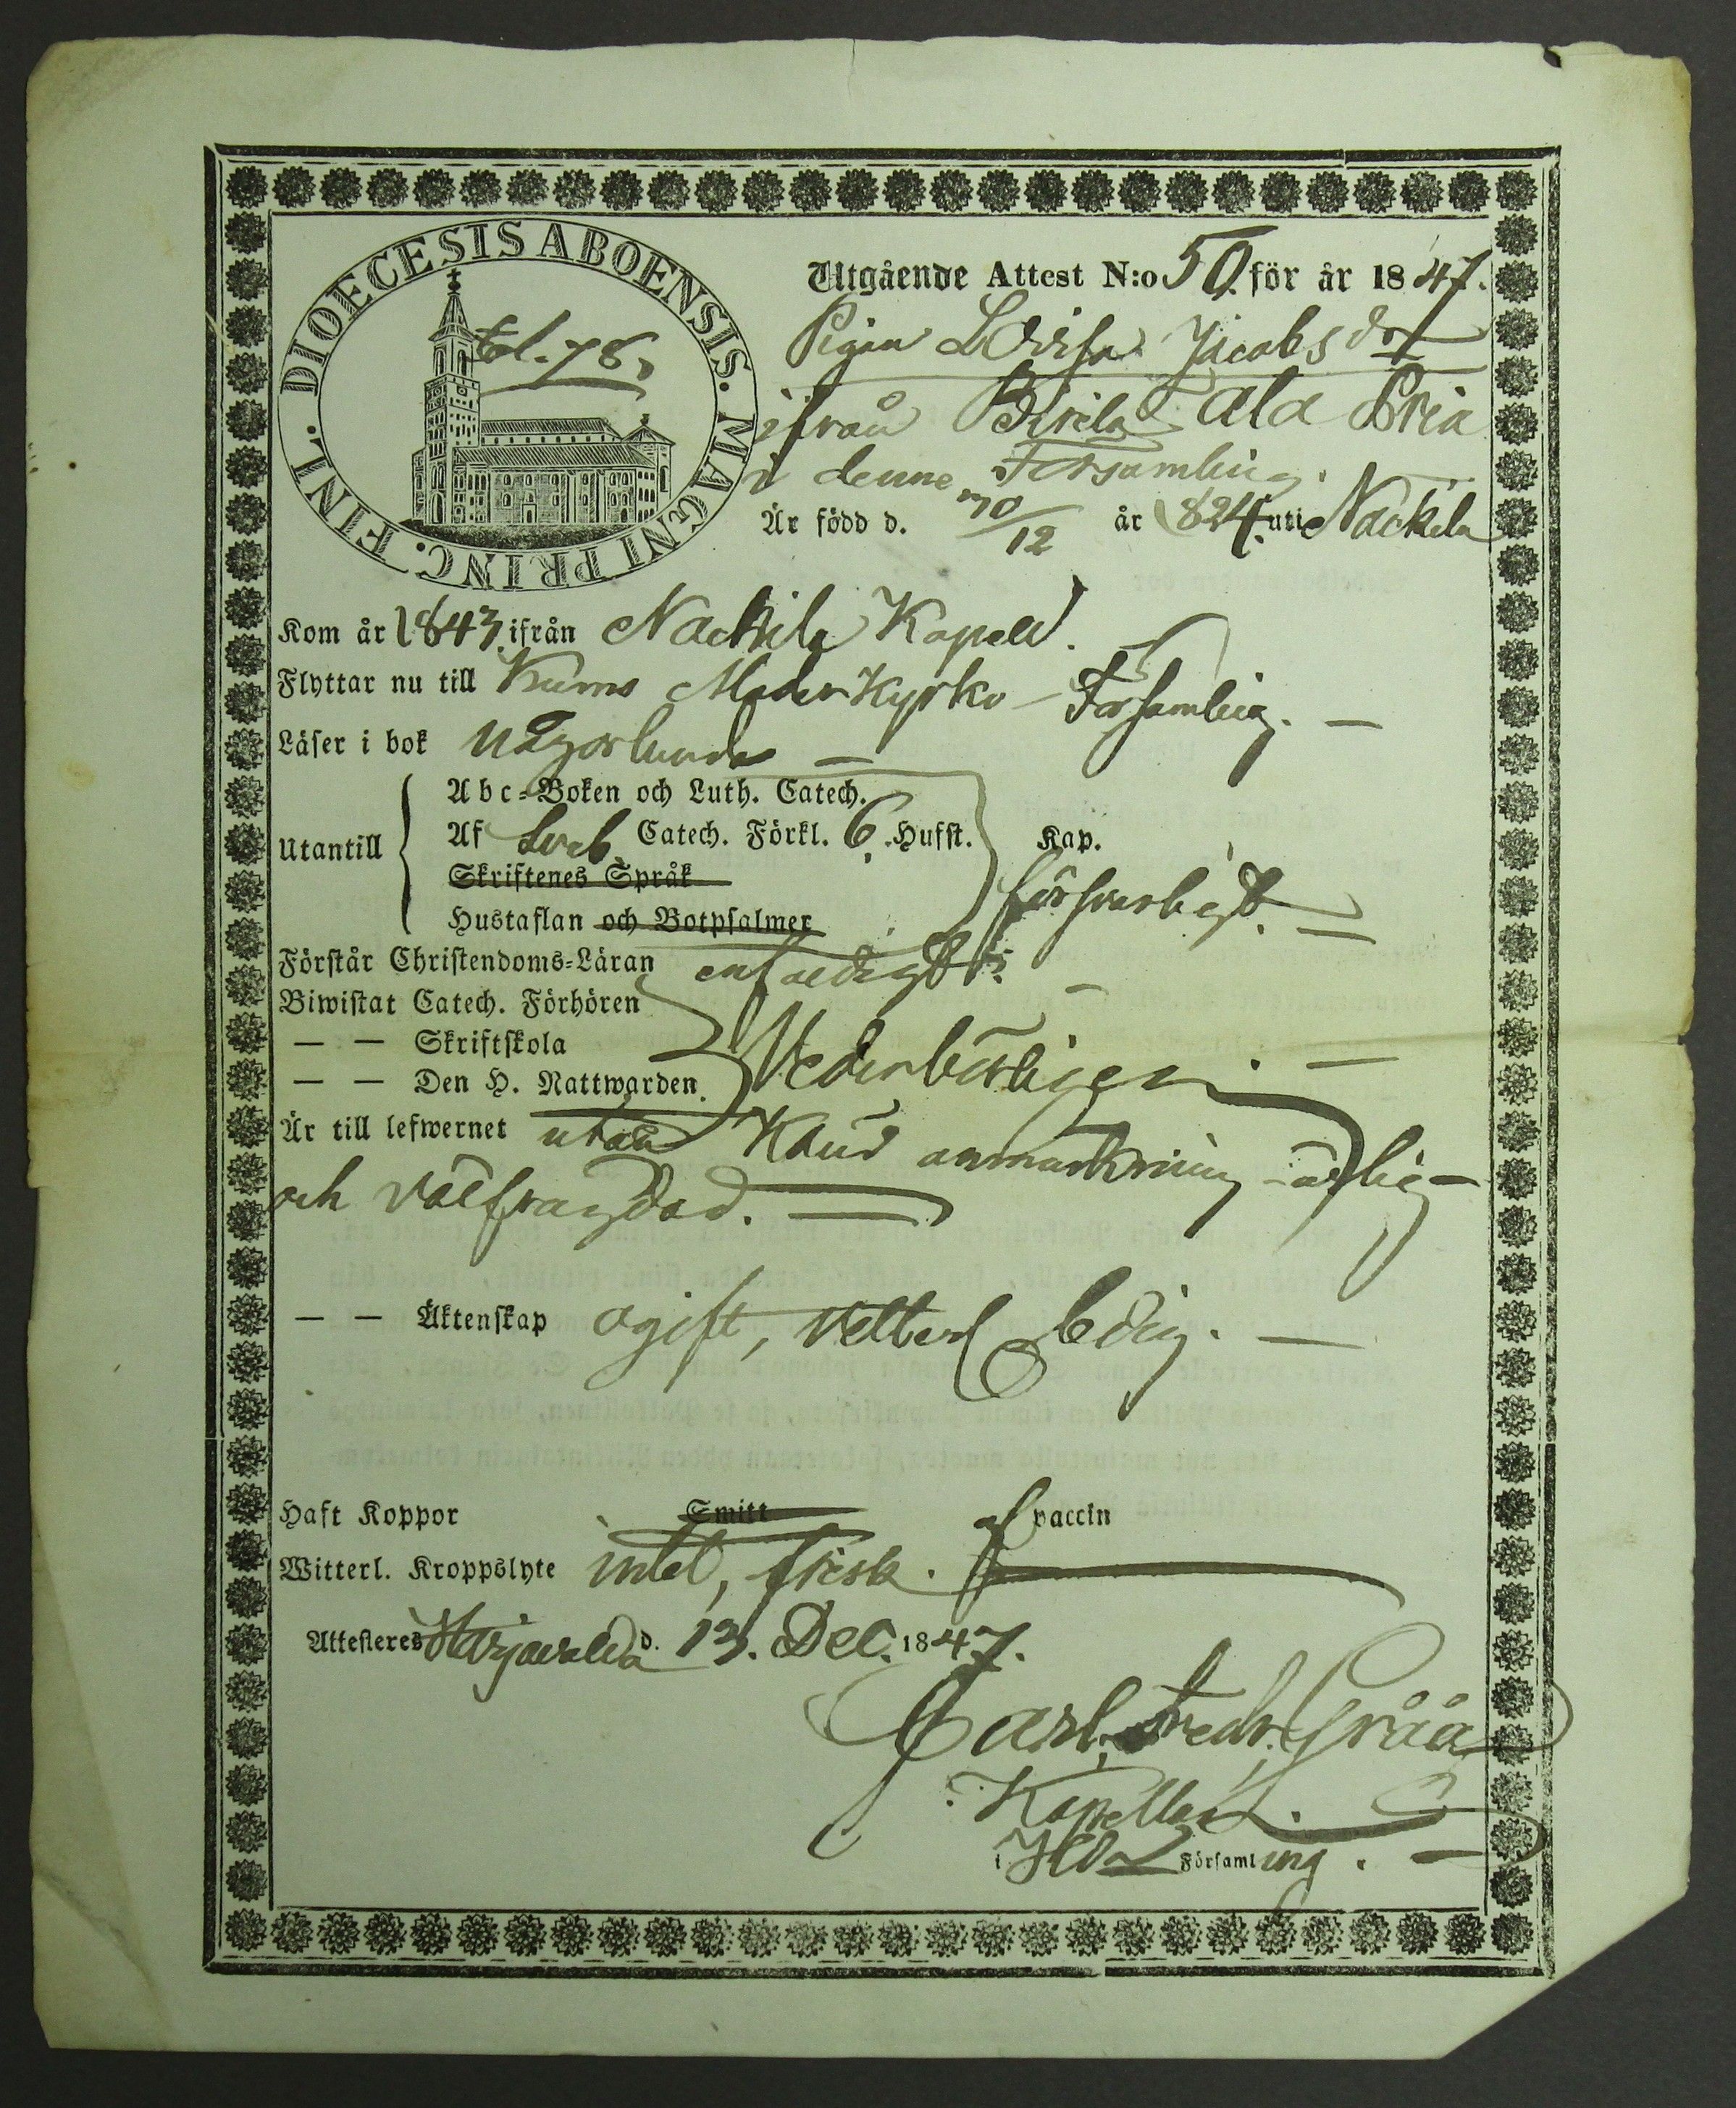 DIOECESIS ABOENSIS. MAGNI PRINC. FINL.
Utgående Attest N:o 50. för år 1847.
Pigan Lovisa Jacobsdr
ifrån Pirilä ala Pria
i denne Församling.
Är född d. 30/12 år 1824. uti Nackila
Kom år 1843 ifrån Nackila Kapell.
Flyttar nu till Kumo Moderkyrko Församling. —
Läser i bok någorlunda —
Abc-Boken och Luth. Catech.
Utantill Af Sveb. Catech. Förkl. 6. Hufst. Kap.
Skriftenes Språk
försvarligt. —
Hustaflan och Botpsalmer
Förstår Christendoms-Läran enfaldigt.
Biwistat Catech. Förhören
— — Skriftskola
— — Den H. Nattwarden. Vederbörligen. —
Är till lefwernet utan känd anmärkning ärlig
och välfrägdad. —
— — Äktenskap ogift, vetterl. ledig. —
Haft Koppor Smitt af vaccin
Witterl. Kroppslyte intet, frisk.
Attesteres Harjavalda d. 13. Dec. 1847.
Carl Fredr. Gråå
Kapellan.
i Församling. —